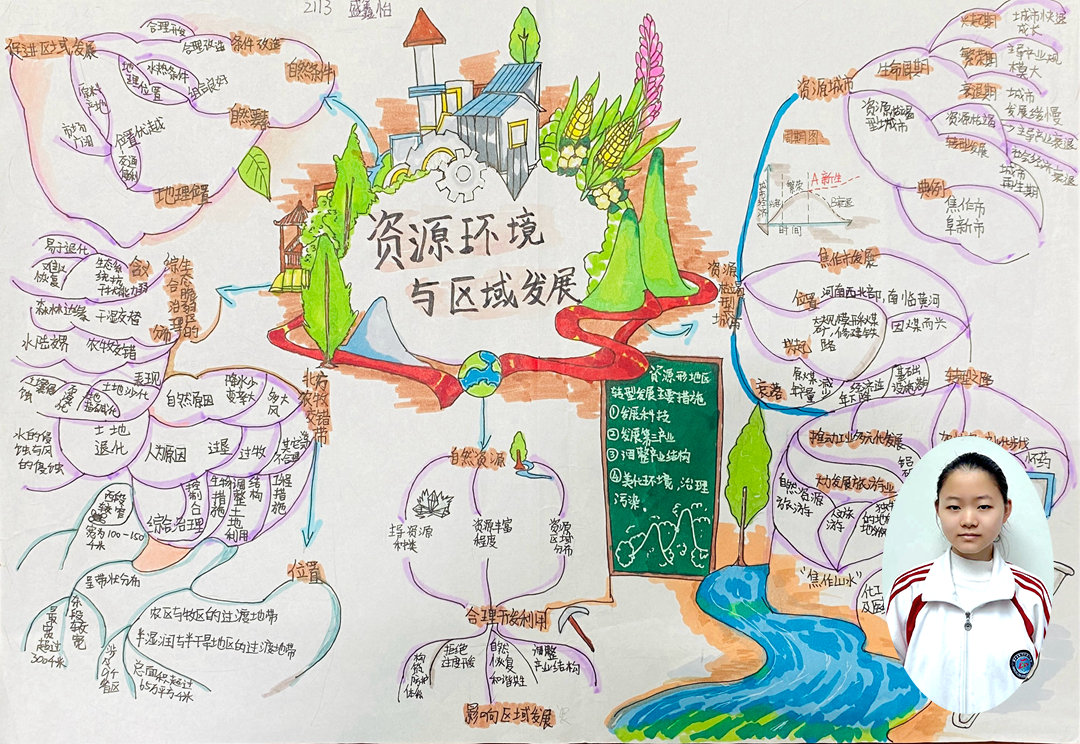 2113 盛鑫怡
资源环境
与区域发展
促进区域发展
合理开发
合理改造
条件改造
自然条件
地理位置
水热条件
组合良好
自然要素
位置优越
交通便利
地理位置
综合治理
生态脆弱区的
含义
易于退化
难以恢复
生态系统抗干扰能力弱
分布
森林边缘
干湿交替
水陆交界
农牧交错
北方农牧交错带
表现
土地沙化
土地退化
水的侵蚀与风的侵蚀
自然原因
降水少变率大
多大风
人为原因
过垦
过牧
综合治理
生物措施
调整土地利用结构
工程措施
西段较窄
宽为100-150千米
呈带状分布
东段较宽
最宽超过300千米
涉及9个省区
位置
农区与牧区的过渡地带
半湿润与半干旱地区的过渡地带
总面积超过65万平方千米
自然资源
主导资源种类
资源丰富程度
资源区域分布
合理开发利用
构筑防护体系
拒绝过度开发
自然恢复和谐共生
调整产业结构
影响区域发展
资源形地区
转型发展主要措施
①发展科技
②发展第三产业
③调整产业结构
④美化环境,治理
污染.
资源枯竭型城市
资源城市
生命周期
兴起期
城市快速成长
繁荣期
主导产业规模大
衰退期
城市发展缓慢
主导产业衰退
社会经济衰退
资源枯竭型城市
资源枯竭
转型发展
城市再生期
典例
焦作市
阜新市
周期图
A新生
B衰退
繁荣
时间
焦作市发展
位置
河南西北部,南临黄河
大规模开采煤矿,修建铁路
因煤而兴
兴起
衰落
原煤产量减少
经济连年下降
基础设施差
转型之路
推动工业多元化发展
大力发展旅游业
自然资源旅游
"焦作山水"